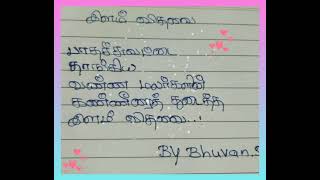 இளம் விதவை
பாதச்சுவடை
தாங்கிய
வண்ண மலர்களின்
கண்ணீரைத் துடைத்த
இளம் விதவை..!
BY Bhuvan.S